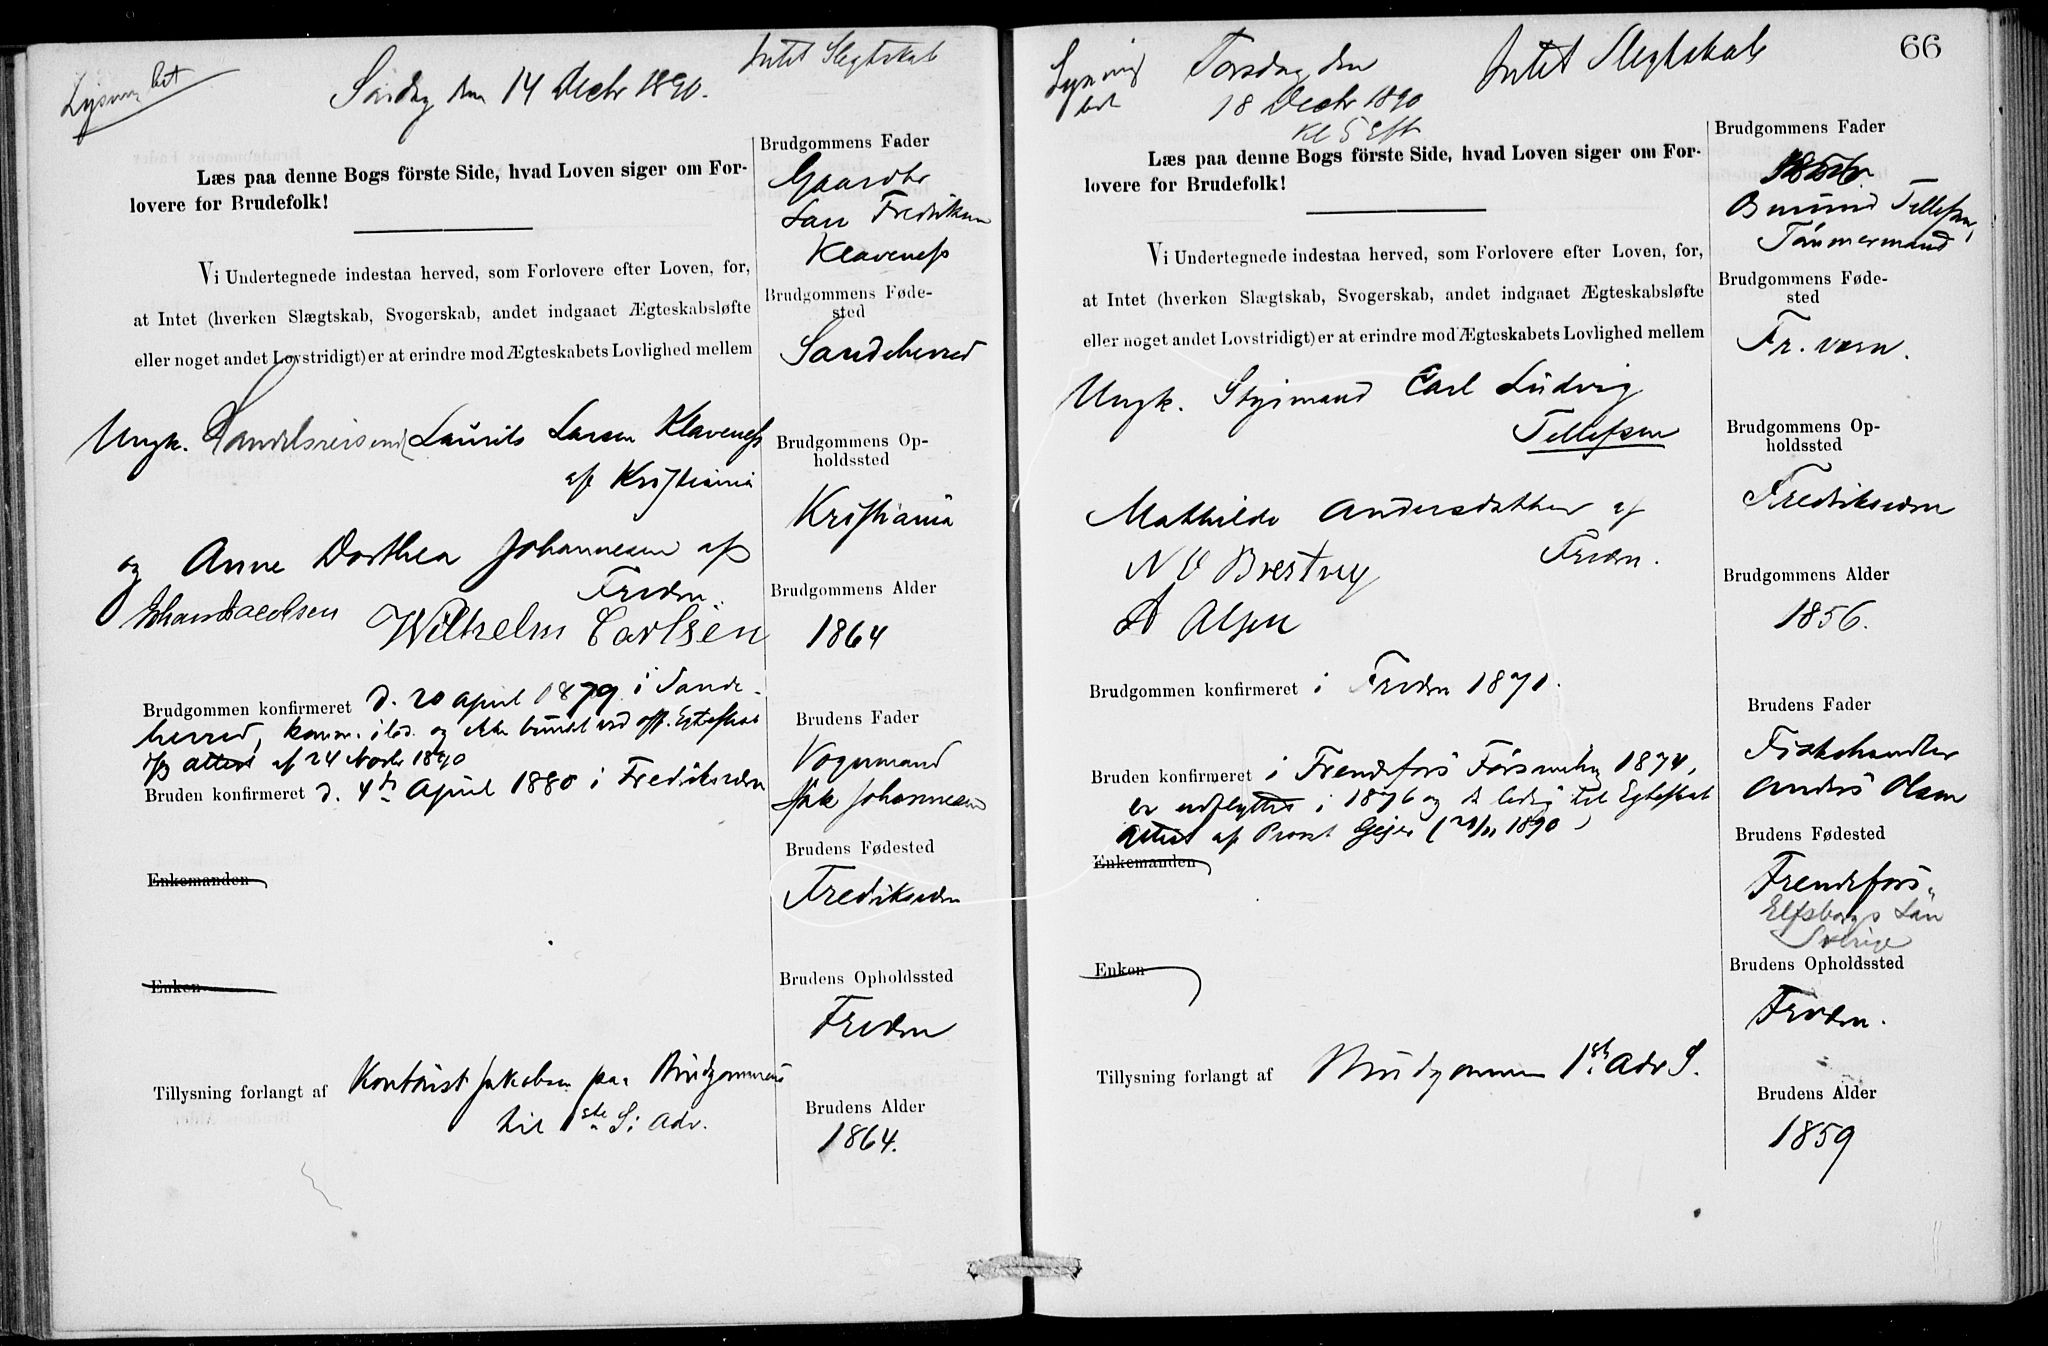 Lysning bet
Søndag den 14 Decbr 1890.
Intet Slegtskab
Læs paa denne Bogs förste Side, hvad Loven siger om For-
lovere for Brudefolk!
Vi Undertegnede indestaa herved, som Forlovere efter Loven, for,
at Intet (hverken Slægtskab, Svogerskab, andet indgaaet Ægteskabsløfte
eller noget andet Lovstridigt) er at erindre mod Ægteskabets Lovlighed mellem
Ungk. Handelsreisende Laurits Larsen Klaveness
af Kristiania
og Anne Dorthea Johannesen af
Frværn.
Wilhelm Carlsen
Brudgommen konfirmeret d. 20 april 1879 i Sande-
herred, og ikke bundet ved Egteskab
attest af 24 Novbr 1890
Bruden konfirmeret d. 4de April 1880 i Fredriksværn
Enkemanden
Enken
Tillysning forlangt af Kontorist Jakobsen paa Brudgommens
til 1ste S. i Adv.
Brudgommens Fader
Gaardbr
Lars Fredriksen
Klaveness
Brudgommens Føde-
sted
Sandeherred
Brudgommens Op-
holdssted
Kristiania
Brudgommens Alder
1864
Brudens Fader
Vognmand
Jak Johannesen
Brudens Fødested
Fredriksværn
Brudens Opholdssted
Frværn
Brudens Alder
1864.
66
Lysning
bet
Torsdag den
18 Decbr 1890
Kl 5 Eft
Intet Slegtskab
Læs paa denne Bogs förste Side, hvad Loven siger om For-
lovere for Brudefolk!
Vi Undertegnede indestaa herved, som Forlovere efter Loven, for,
at Intet (hverken Slægtskab, Svogerskab, andet indgaaet Ægteskabsløfte
eller noget andet Lovstridigt) er at erindre mod Ægteskabets Lovlighed mellem
Ungk. Styrmand Carl Ludvig
Tellefsen
Mathilde Andersdatter af
Frværn.
N O Brestrup
A Olsen
Brudgommen konfirmeret i Frværn 1871.
Bruden konfirmeret i Frendefors Församling 1874,
er udflyttet i 1876 og er ledig til Egteskab
Attest af Prost Gejer (21/11 1890)
Enkemanden
Enken
Tillysning forlangt af Brudgommen 1ste Adv S.
Brudgommens Fader
Tellefsen,
Tömmermand
Brudgommens Føde-
sted
Fr. værn.
Brudgommens Op-
holdssted
Fredriksværn
Brudgommens Alder
1856.
Brudens Fader
Fiskehandler
Anders Olsen
Brudens Fødested
Frendefors,
Elfsborgs Län
Sverige
Brudens Opholdssted
Frværn.
Brudens Alder
1859